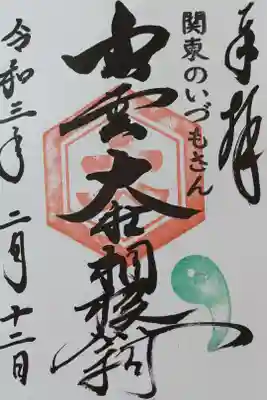 奉拝
関東のいづもさん
出雲大社相模分祠
令和三年 二月 十二日